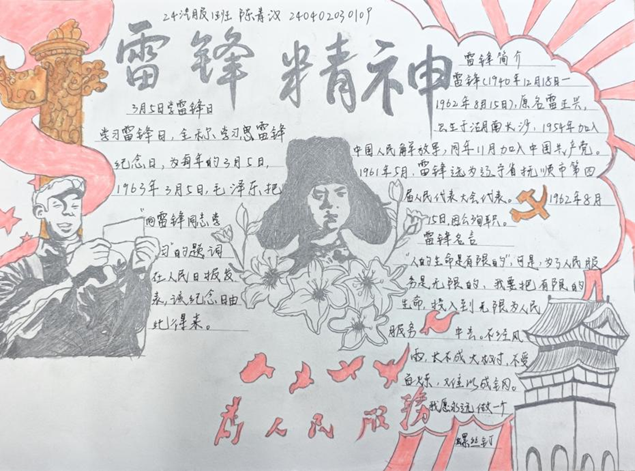 24汽服13班 陈青汉 240402030109
雷锋精神
3月5日学雷锋日
学习雷锋日,全称学习思雷锋
纪念日,为每年的3月5日,
1963年3月5日,毛泽东把
"向雷锋同志学
习"的题词
在人民日报发
表,该纪念日由
此得来。
雷锋简介
雷锋(1940年12月18日—
1962年8月15日),原名雷正兴,
出生于湖南长沙,1954年加入
中国人民解放军,同年11月加入中国共产党。
1961年5月,雷锋选为辽宁省抚顺市第四
届人民代表大会代表。1962年8月
15日,因公殉职。
雷锋名言
"人的生命是有限的",可是,为人民服
务是无限的,我要把有限的
生命,投入到无限为人民
服务中去。不经风
雨,长不成大树,不受
百炼,难以成钢。
我愿永远做一个
螺丝钉
为人民服务